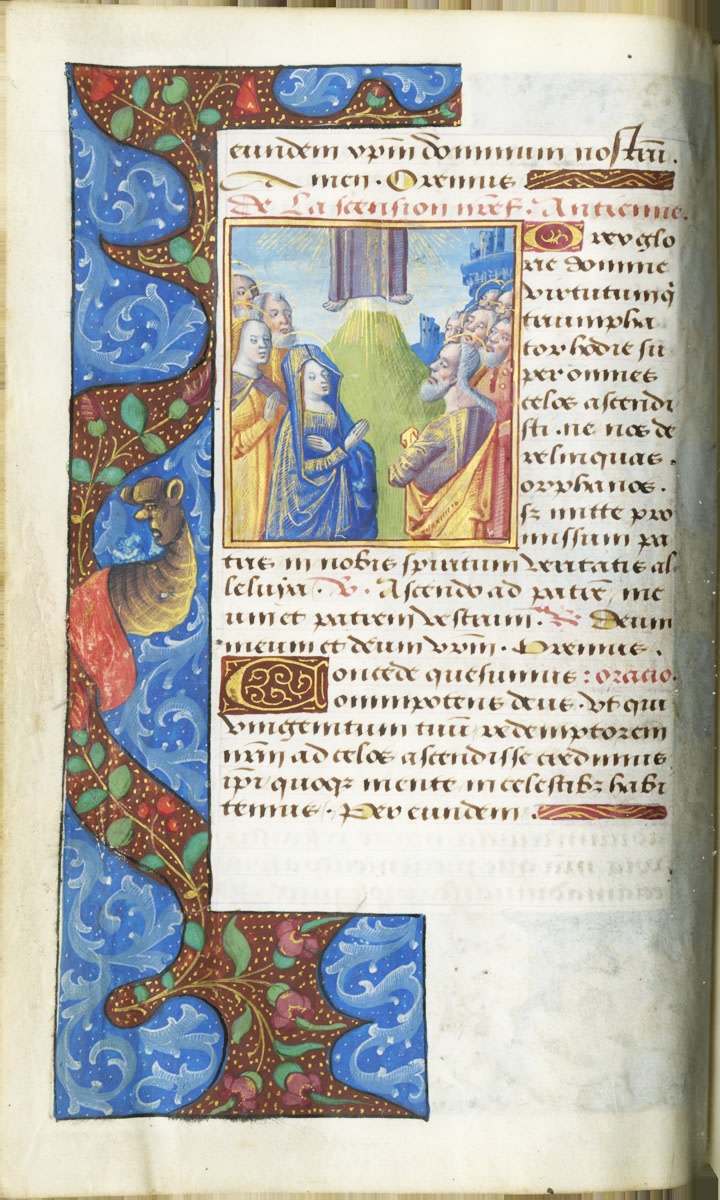 eundem xpm̄ dominum nostrū.
men. Oremus
De Lascension nr̄e s. Antienne.
O rex glo
rie domine
virtutum q̄
triumpha
tor hodie su
per omnes
celos ascendi
sti. ne nos de
relinquas.
orphanos.
sꝫ mitte pro
missum pa
tris in nobis spiritum veritatis al
leluya. V. Ascendo ad patrē me
um et patrem vestrum. R Deum
meum et deum vr̄m. Oremus.
Concede quesumus : oracio.
omnipotens deus. Vt qui
vnigenitum tuū redemptorem
nr̄m ad celos ascendisse credimus
ip̄i quoqꝫ mente in celestibꝫ habi
temus. Per eundem.